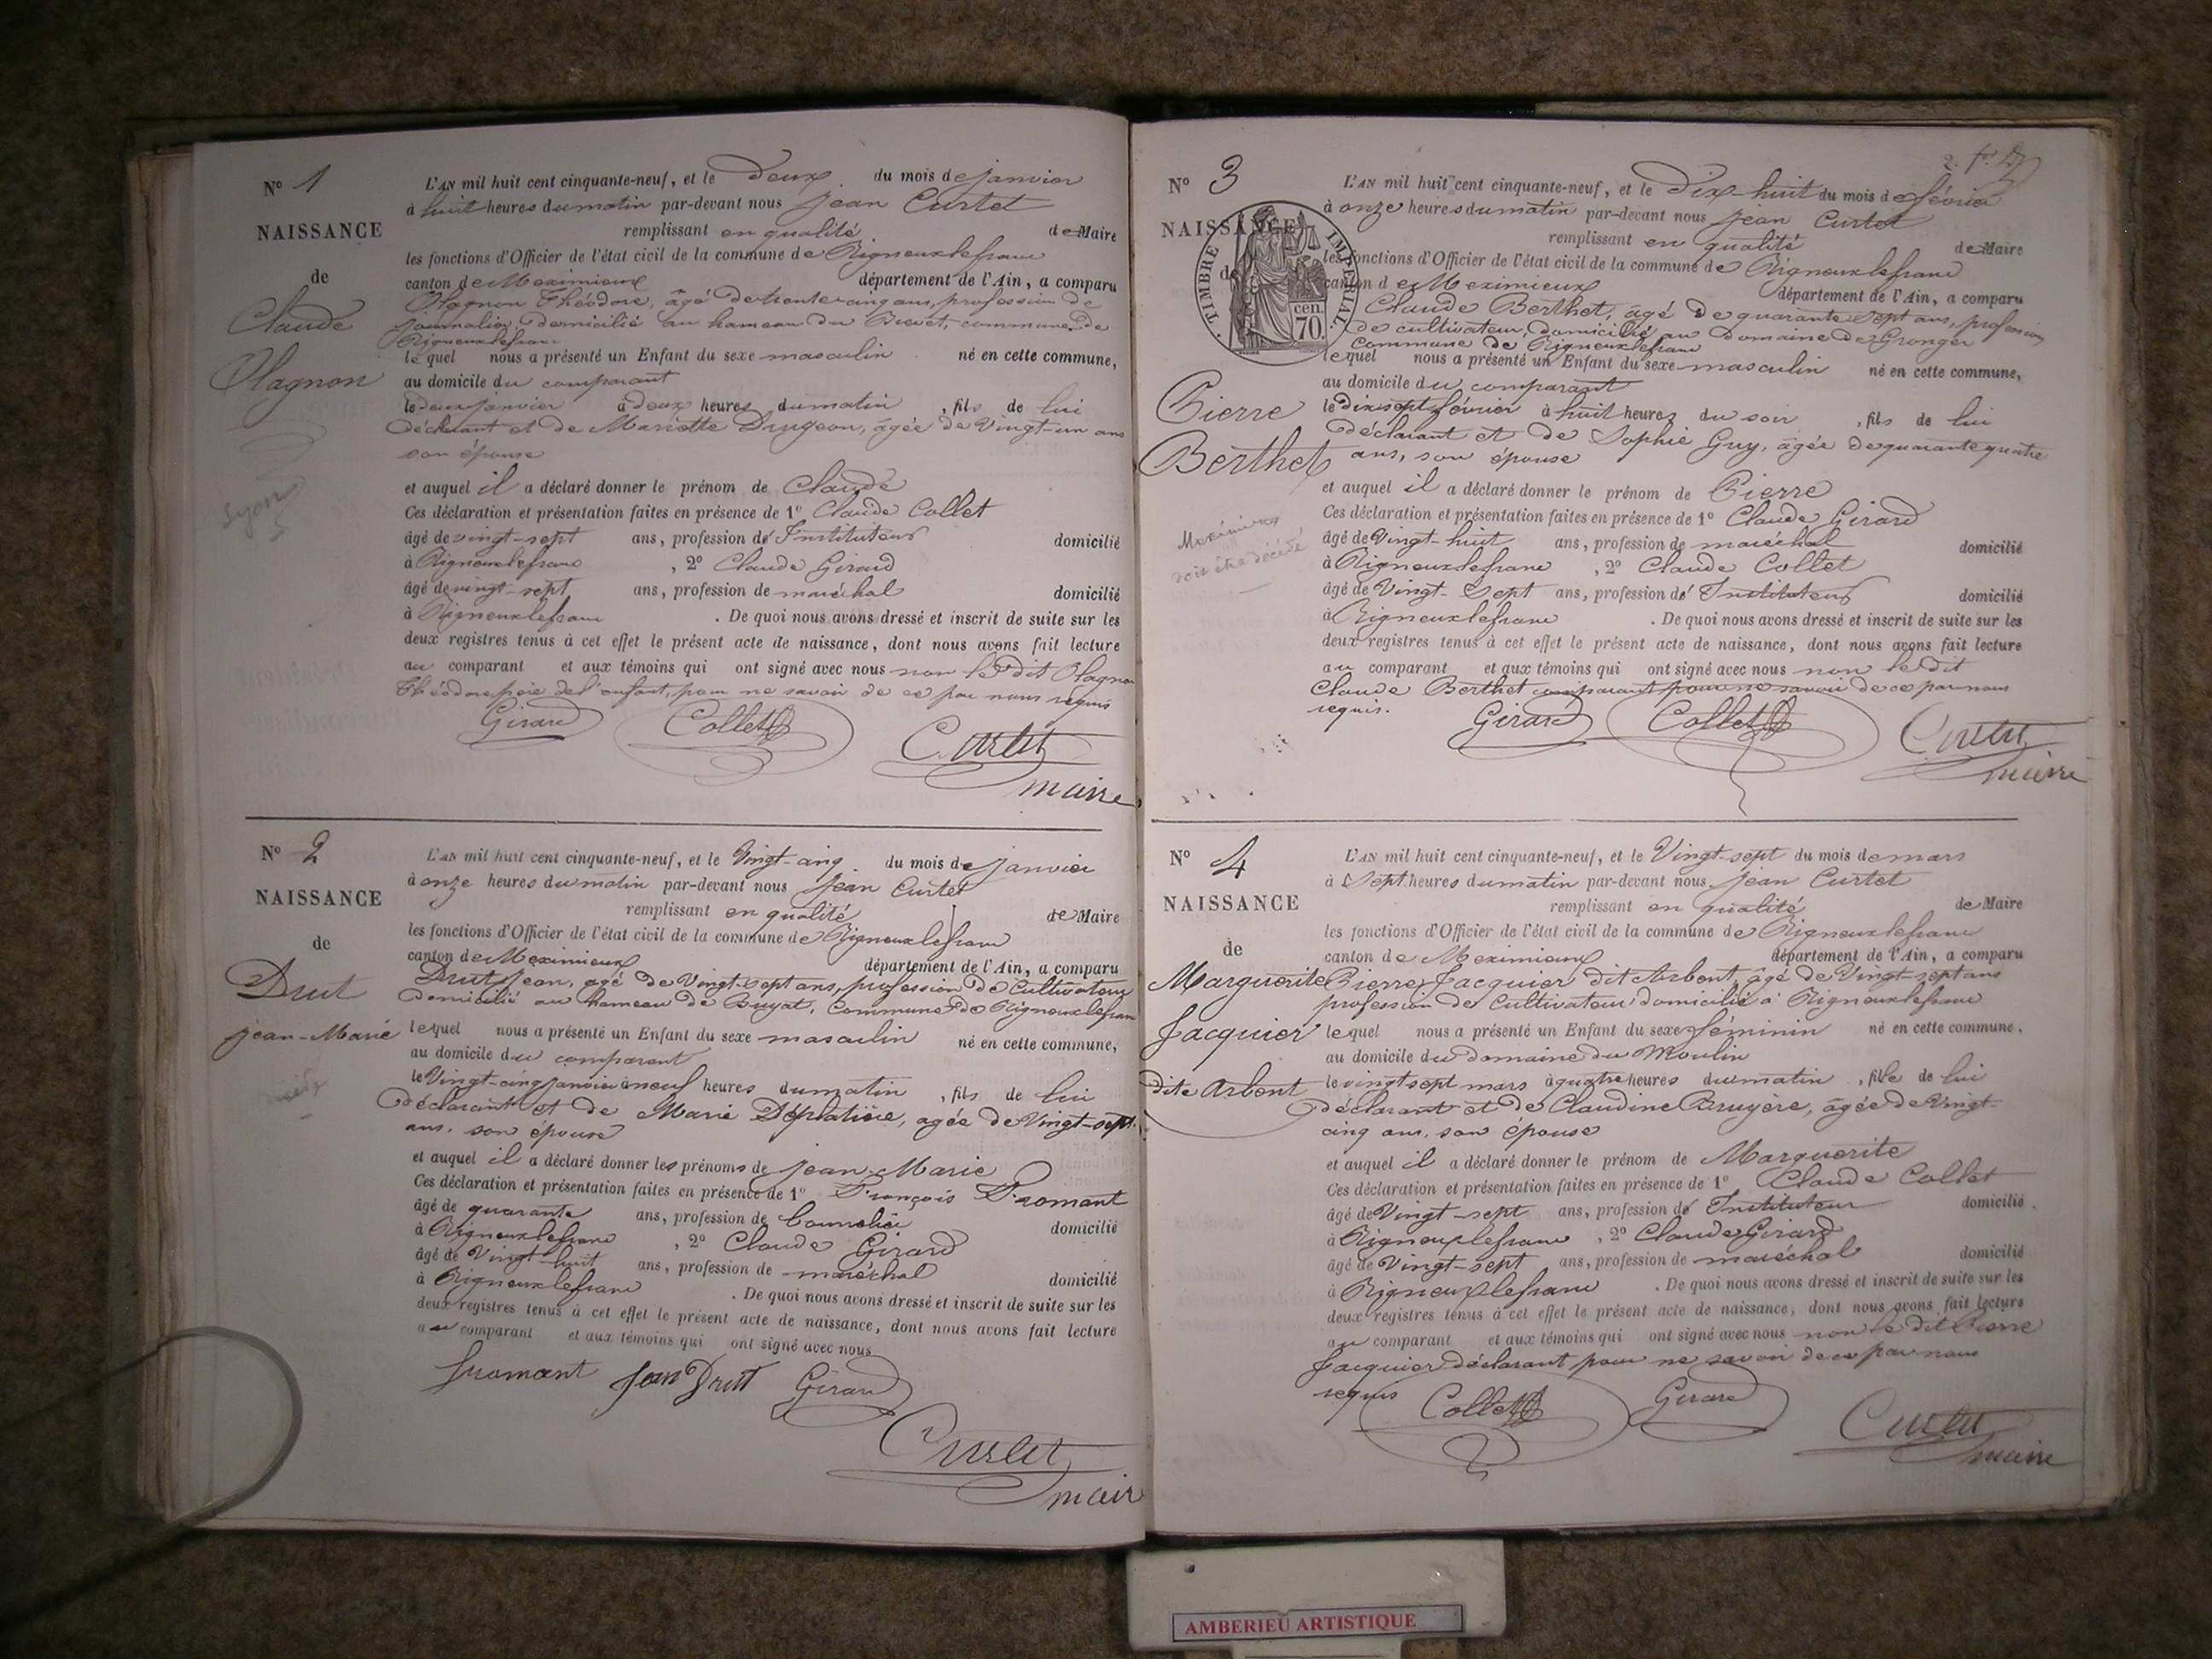 N° 1
NAISSANCE
de
Claude
Olagnon
Lyon
L'AN mil huit cent cinquante-neuf, et le Deux du mois de janvier
à huit heures du matin par-devant nous Jean Curtet
remplissant en qualité de Maire
les fonctions d'Officier de l'état civil de la commune de Rigneuxlefranc
canton de Meximieux département de l'Ain, a comparu
Olagnon Théodore, âgé de trente cinq ans, profession de
journalier, domicilié au hameau du Brevet, commune de
Rigneuxlefranc
lequel nous a présenté un Enfant du sexe masculin né en cette commune,
au domicile du comparant
le deux janvier à deux heures du matin, fils de lui
déclarant et de Mariette Drugeon, âgée de Vingt-un ans
son épouse
et auquel il a déclaré donner le prénom de Claude
Ces déclaration et présentation faites en présence de 1° Claude Collet
âgé de vingt-sept ans, profession d'Instituteur domicilié
à Rigneuxlefranc, 2° Claude Girard
âgé de vingt-sept ans, profession de maréchal domicilié
à Rigneuxlefranc. De quoi nous avons dressé et inscrit de suite sur les
deux registres tenus à cet effet le présent acte de naissance, dont nous avons fait lecture
au comparant et aux témoins qui ont signé avec nous non le dit Olagnon
Théodore père de l'enfant, pour ne savoir de ce par nous requis
Girard Collet Curtet
maire
N° 2
NAISSANCE
de
Drut
Jean-Marie
L'AN mil huit cent cinquante-neuf, et le Vingt-cinq du mois de janvier
à onze heures du matin par-devant nous Jean Curtet
remplissant en qualité de Maire
les fonctions d'Officier de l'état civil de la commune de Rigneuxlefranc
canton de Meximieux département de l'Ain, a comparu
Drut Jean, âgé de Vingt-sept ans, profession de Cultivateur
domicilié au hameau de Buyat, Commune de Rigneuxlefranc
lequel nous a présenté un Enfant du sexe masculin né en cette commune,
au domicile du comparant
le Vingt-cinq janvier à neuf heures du matin, fils de lui
déclarant et de Marie Déplatière, agée de Vingt-sept
ans, son épouse
et auquel il a déclaré donner les prénoms de Jean-Marie
Ces déclaration et présentation faites en présence de 1° François Fromant
âgé de quarante ans, profession de domicilié
à Rigneuxlefranc, 2° Claude Girard
âgé de Vingt-huit ans, profession de maréchal domicilié
à Rigneuxlefranc. De quoi nous avons dressé et inscrit de suite sur les
deux registres tenus à cet effet le présent acte de naissance, dont nous avons fait lecture
au comparant et aux témoins qui ont signé avec nous
fromant Jean Drut Girard
Curtet
mair
N° 3
NAISSANCE
de
TIMBRE IMPÉRIAL.
70 cen.
Pierre
Berthet
Meximieux
doit être décédé
L'AN mil huit cent cinquante-neuf, et le Dix-huit du mois de février
à onze heures du matin par-devant nous Jean Curtet
remplissant en qualité de Maire
les fonctions d'Officier de l'état civil de la commune de Rigneuxlefranc
canton de Meximieux département de l'Ain, a comparu
Claude Berthet, âgé de quarante sept ans, profession
de cultivateur, domicilié au Domaine de Gronger
commune de Rigneuxlefranc
lequel nous a présenté un Enfant du sexe masculin né en cette commune,
au domicile du comparant
le dix sept février à huit heures du soir, fils de lui
déclarant et de Sophie Guy, âgée de quarante quatre
ans, son épouse
et auquel il a déclaré donner le prénom de Pierre
Ces déclaration et présentation faites en présence de 1° Claude Girard
âgé de Vingt-huit ans, profession de maréchal domicilié
à Rigneuxlefranc, 2° Claude Collet
âgé de Vingt-Sept ans, profession d'Instituteur domicilié
à Rigneuxlefranc. De quoi nous avons dressé et inscrit de suite sur les
deux registres tenus à cet effet le présent acte de naissance, dont nous avons fait lecture
au comparant et aux témoins qui ont signé avec nous non le dit
Claude Berthet comparant pour ne savoir de ce par nous
requis.
Girard Collet Curtet
maire
N° 4
NAISSANCE
de
Marguerite
Jacquier
dite Arbont
L'AN mil huit cent cinquante-neuf, et le Vingt-sept du mois de mars
à Sept heures du matin par-devant nous Jean Curtet
remplissant en qualité de Maire
les fonctions d'Officier de l'état civil de la commune de Rigneuxlefranc
canton de Meximieux département de l'Ain, a comparu
Pierre Jacquier dit Arbont, âgé de Vingt-sept ans
profession de Cultivateur domicilié à Rigneuxlefranc
lequel nous a présenté un Enfant du sexe féminin né en cette commune.
au domicile du domaine du Moulin
le vingt sept mars à quatre heures du matin, fille de lui
déclarant et de Claudine Bruyère, âgée de Vingt-
cinq ans, son épouse
et auquel il a déclaré donner le prénom de Marguerite
Ces déclaration et présentation faites en présence de 1° Claude Collet
âgé de Vingt-sept ans, profession d'Instituteur domicilié
à Rigneuxlefranc, 2° Claude Girard
âgé de Vingt-sept ans, profession de maréchal domicilié
à Rigneuxlefranc. De quoi nous avons dressé et inscrit de suite sur les
deux registres tenus à cet effet le présent acte de naissance, dont nous avons fait lecture
au comparant et aux témoins qui ont signé avec nous non le dit Pierre
Jacquier déclarant pour ne savoir de ce par nous
requis Collet Girard
Curtet
maire
AMBERIEU ARTISTIQUE